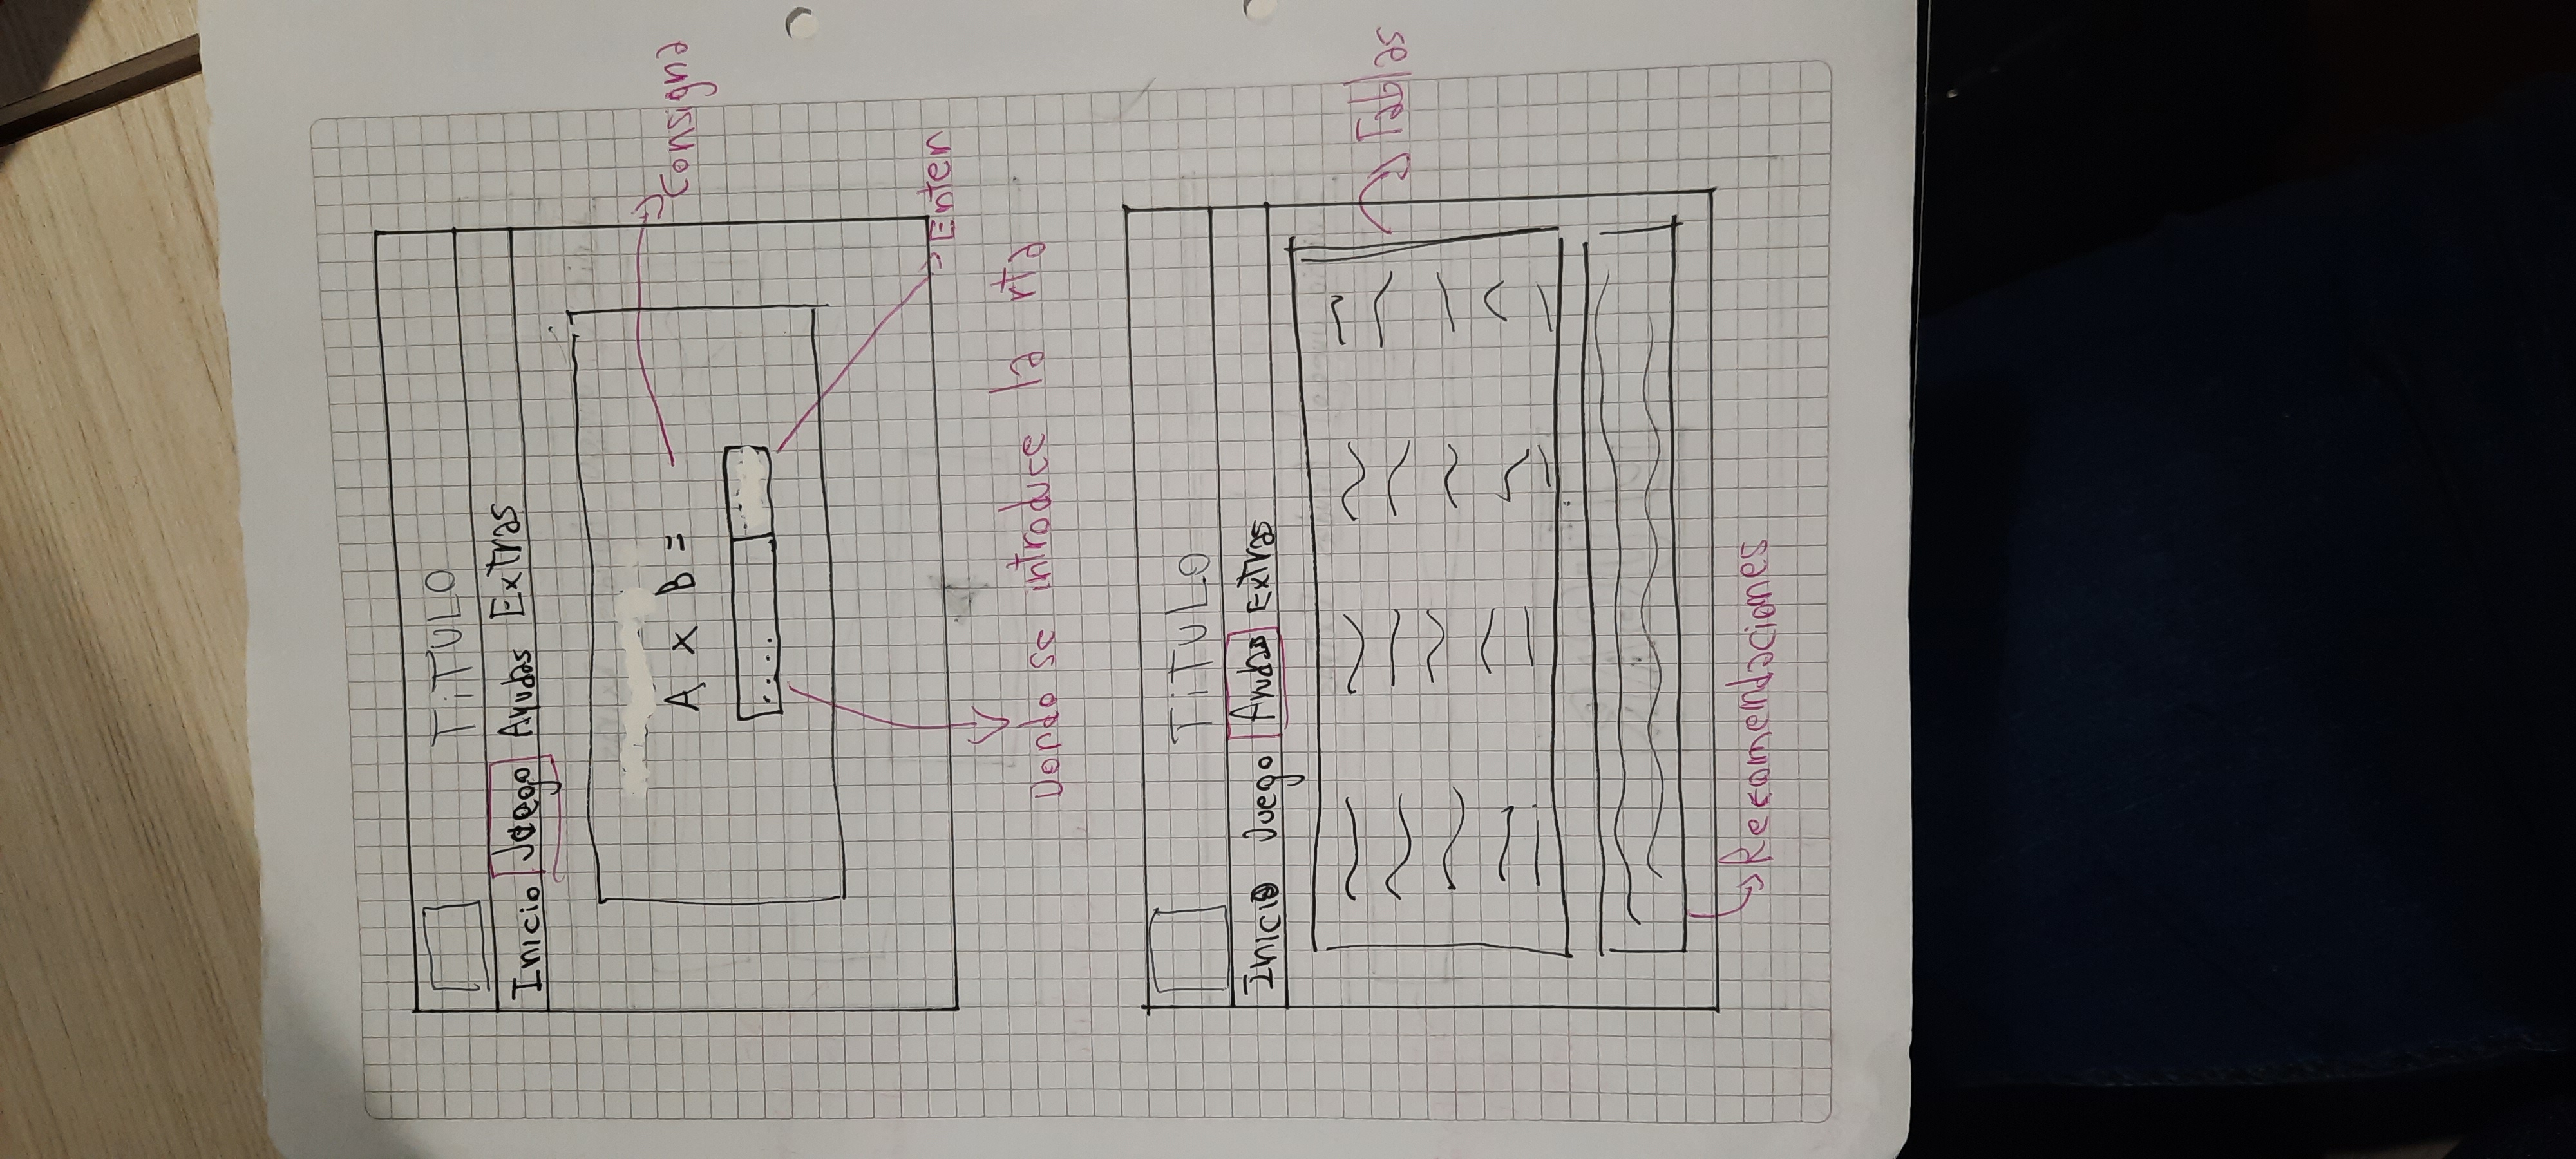 TiTULO
Inicio Juego Ayudas Extras
A x B =
Consigna
....
Enter
Donde se introduce la rta
TiTULO
Inicio Juego Ayudas Extras
Tablas
Recomendaciones